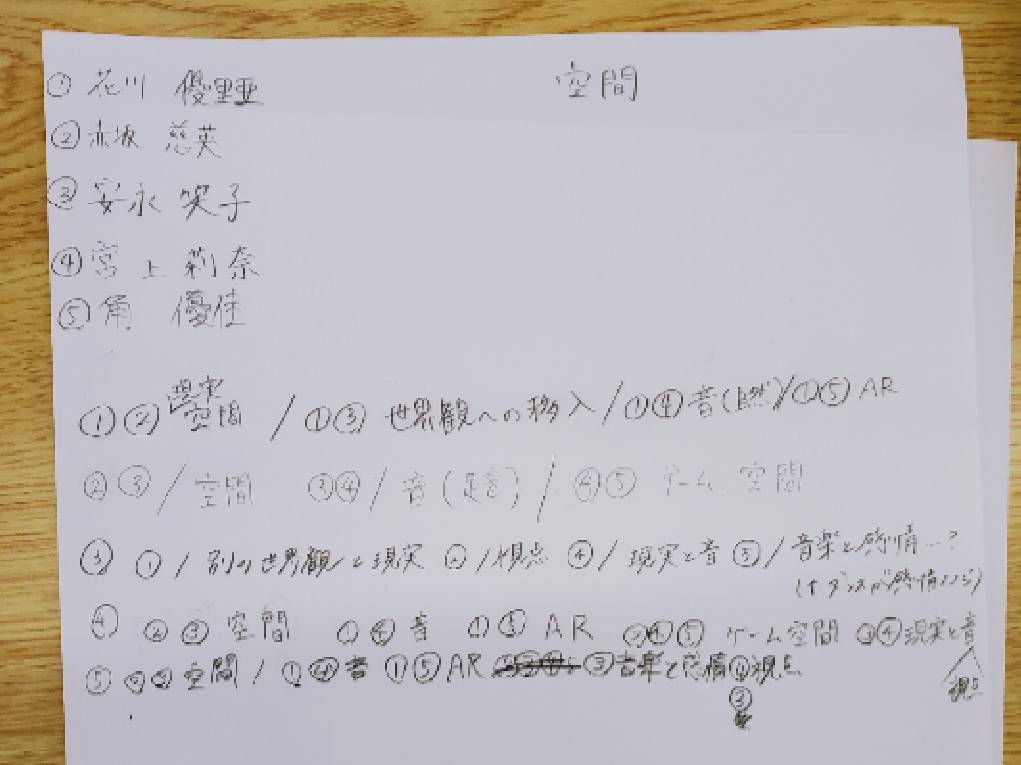 ① 花川 優里亜
空間
② 赤坂 慈英
③ 安永 笑子
④ 宮上 莉奈
⑤ 角 優佳
現実
①② 空間 / ①③ 世界観への移入 / ①④ 音(自然) / ①⑤ AR
②③ / 空間 ③④ / 音(足音) / ④⑤ ゲーム 空間
③ ① / 別の世界観と現実 ② / 視点 ④ / 現実と音 ⑤ / 音楽と感情…?
(↑ダンスが感情
④ ②③ 空間 ①④ 音 ①⑤ AR ⑤ ゲーム空間 ③④ 現実と音
視点
⑤ 空間 / ①④ 音 ①⑤ AR ③ 音楽と感情 ④ 視点
③